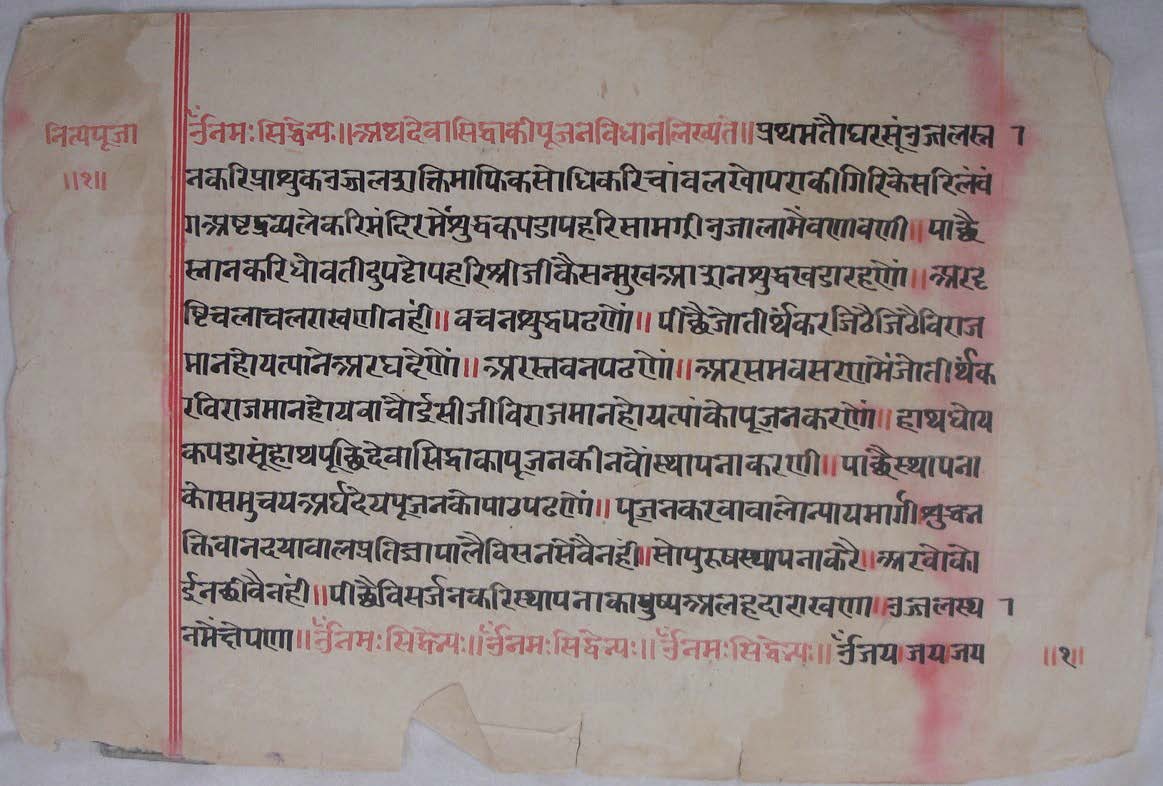 नित्यपूजा
॥१॥
ॐनमःसिद्धेभ्यः॥अथदेवासिद्वाकीपूजनविधानलिख्यते॥प्रथमतौघरसूंउजलस्न
नकरिप्राशुकउजलशक्तिमाफिकसोधिकरिचांवलखोपराकीगिरिकेसरिलवं
गअष्टद्रव्यलेकरिमंदिरमेंशुद्धकपडापहरिसामग्रीउजालामैंवणावणी॥पाछै
स्नानकरिधोवतीदुपट्टोपहरिश्रीजीकैसन्मुखआशनशुद्धखडारहणों॥अरदृ
ष्टिचलाचलराखणीनहीं॥वचनशुद्धपढणों॥पीछैजोतीर्थंकरजिठैजिठैविराज
मानहोयत्यांनेअरघदेणों॥अरस्तवनपढणों॥अरसमवसरणमेंजोतीर्थंक
रविराजमानहोयवाचौईसीजीविराजमानहोयत्यांकोपूजनकरणों॥हाथधोय
कपडासूंहाथपूंछिदेवासिद्वाकापूजनकीनवोंस्थापनाकरणी॥पाछैस्थापना
कोसमुचयअर्घदेयपूजनकोपाठपढणों॥पूजनकरवावालोन्यायमार्गीशुद्धन
क्तिवानदयावालप्रतिज्ञापालैविसनसेंवैनहीं॥सोपुरुषस्थापनाकरै॥अरवोको
ईनछीवैनहीं॥पीछैविसर्जनकरिस्थापनाकापुष्पअलहदाराखणा॥उजलस्थ
नमेंक्षेपणा॥ॐनमःसिद्धेभ्यः॥ॐनमःसिद्धेभ्यः॥ॐनमःसिद्धेभ्यः॥ॐजयजयजय
॥१॥